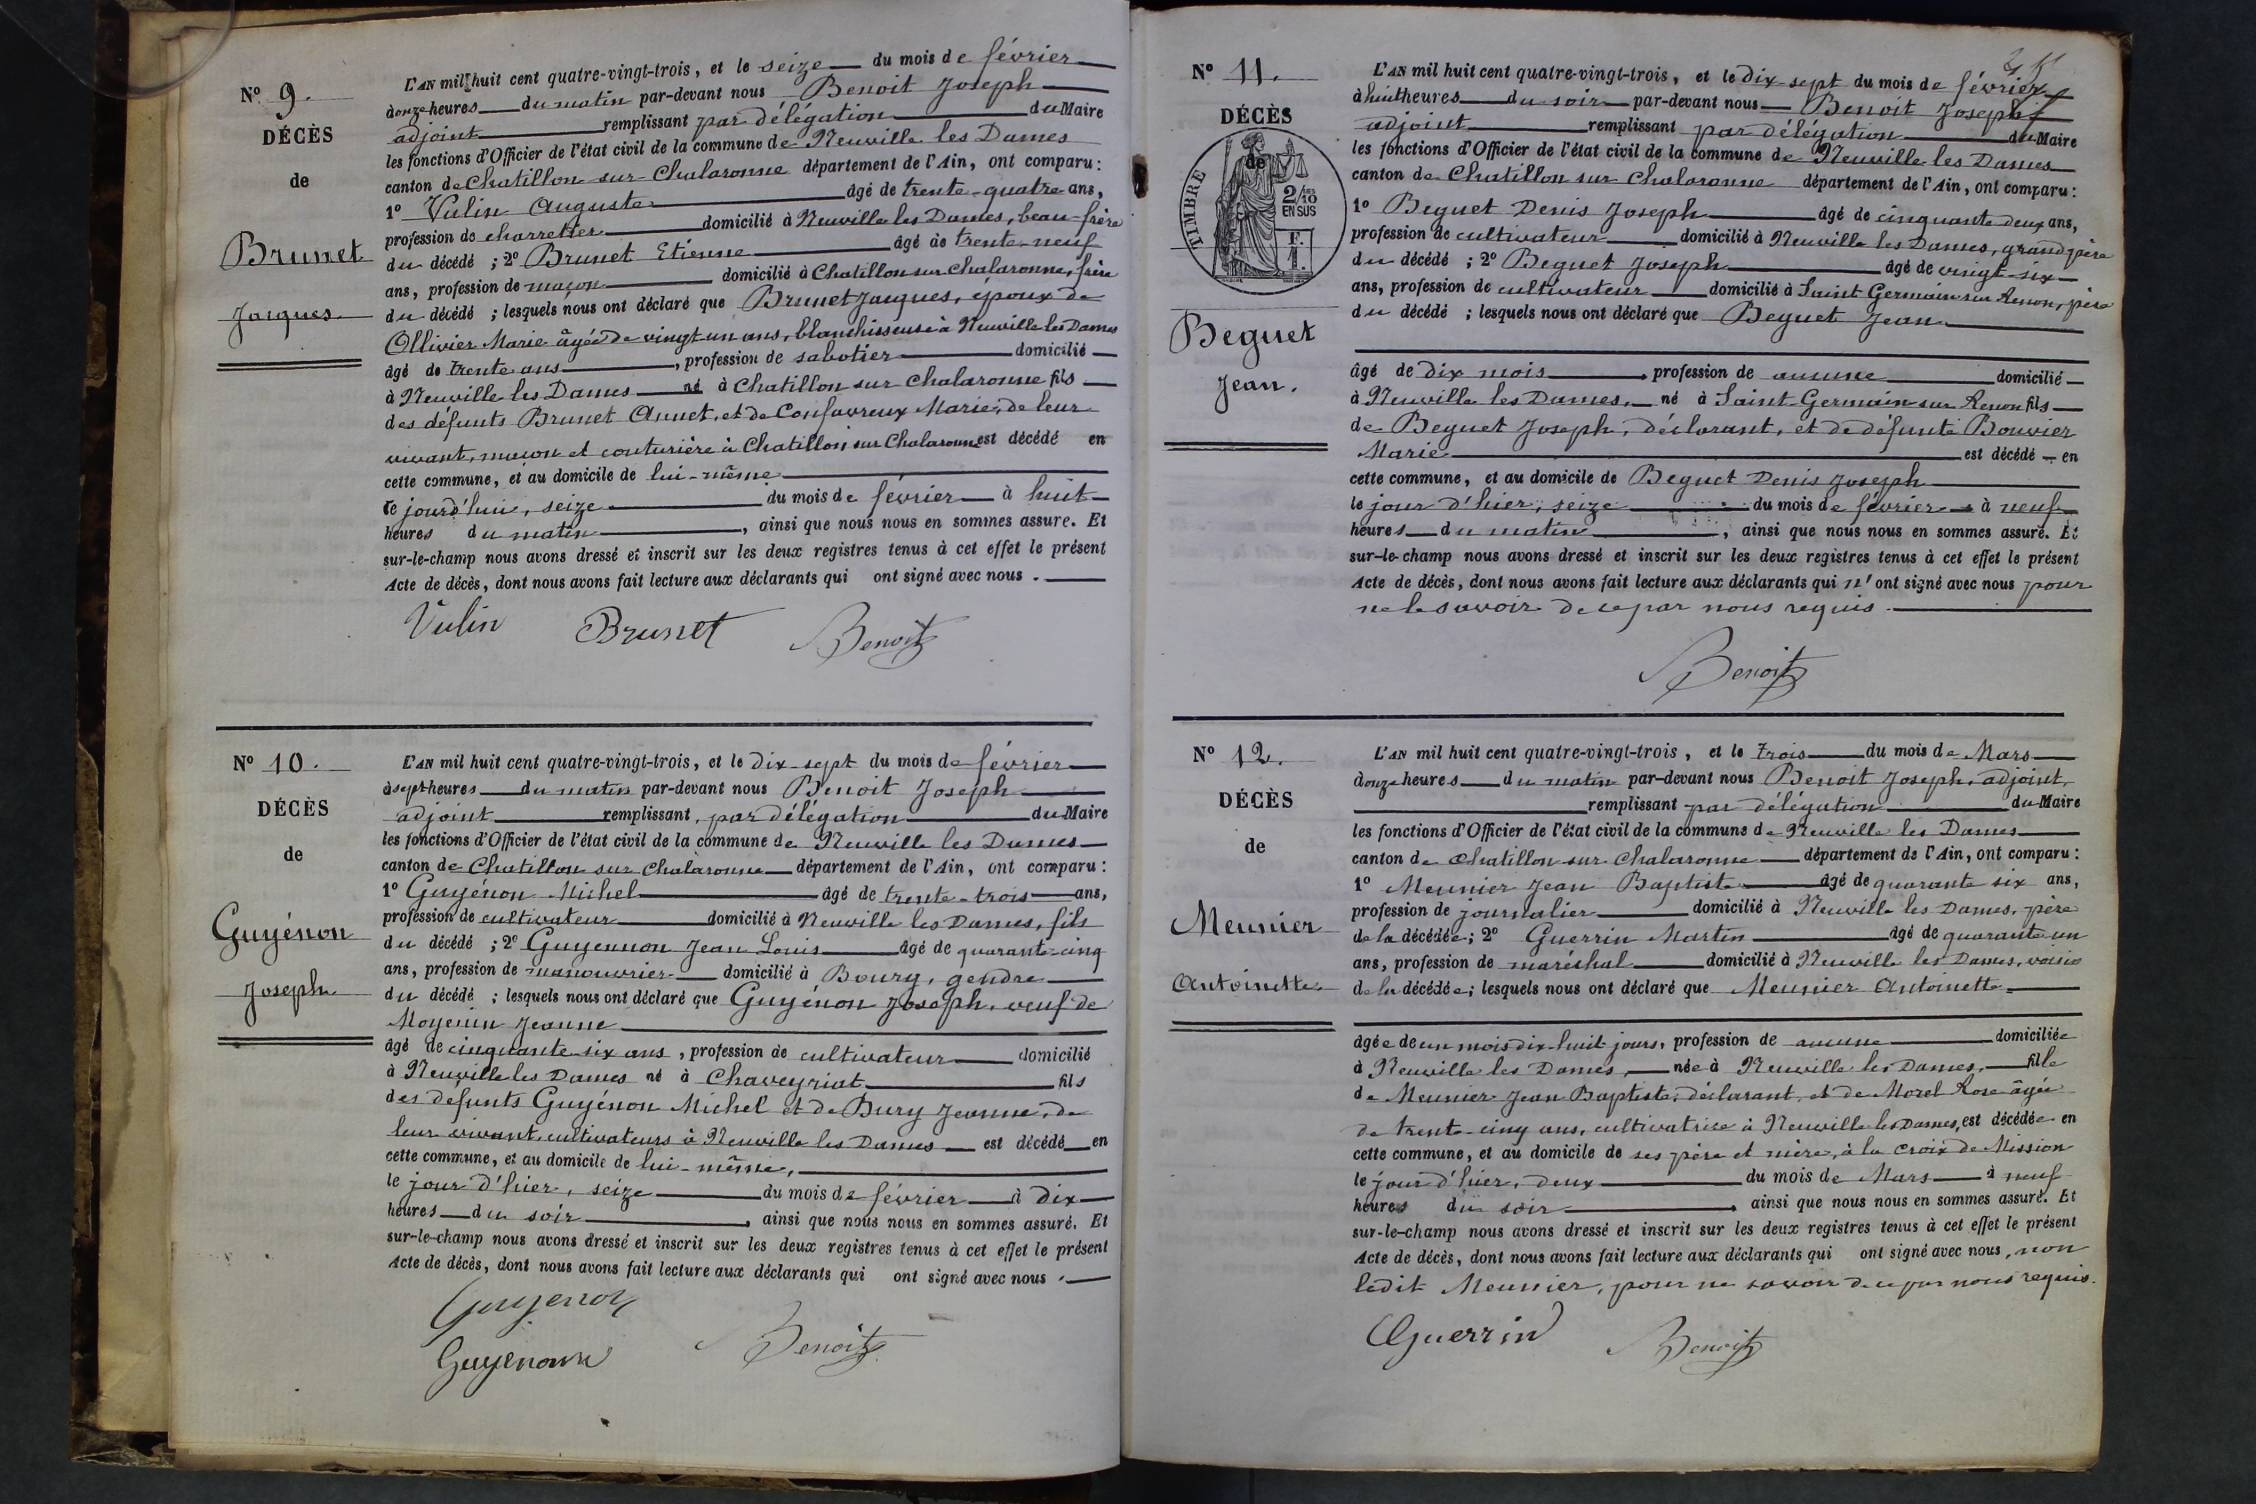 N° 9.
DÉCÈS
de
Brunet
Jacques
L'AN mil huit cent quatre-vingt-trois, et le seize du mois de février
à onze heures du matin par-devant nous Benoit Joseph
adjoint remplissant par délégation du Maire
les fonctions d'Officier de l'état civil de la commune de Neuville les Dames
canton de Chatillon sur Chalaronne département de l'Ain, ont comparu :
1° Vulin Auguste âgé de trente-quatre ans,
profession de charretier domicilié à Neuville les Dames, beau-frère
du décédé ; 2° Brunet Etienne âgé de trente-neuf
ans, profession de maçon domicilié à Chatillon sur Chalaronne, frère
du décédé ; lesquels nous ont déclaré que Brunet Jacques, époux de
Ollivier Marie âgée de vingt un ans, blanchisseuse à Neuville les Dames
âgé de trente ans, profession de sabotier domicilié
à Neuville les Dames né à Chatillon sur Chalaronne fils
des défunts Brunet Annet, et de Confavreux Marie, de leur
vivant, maçon et couturière à Chatillon sur Chalaronne est décédé en
cette commune, et au domicile de lui-même
ce jourd'hui, seize du mois de février à huit
heures du matin, ainsi que nous nous en sommes assuré. Et
sur-le-champ nous avons dressé et inscrit sur les deux registres tenus à cet effet le présent
Acte de décès, dont nous avons fait lecture aux déclarants qui ont signé avec nous.
Vulin Brunet Benoit
N° 10.
DÉCÈS
de
Guyénon
Joseph
L'AN mil huit cent quatre-vingt-trois, et le dix-sept du mois de février
à sept heures du matin par-devant nous Benoit Joseph
adjoint remplissant par délégation du Maire
les fonctions d'Officier de l'état civil de la commune de Neuville les Dames
canton de Chatillon sur Chalaronne département de l'Ain, ont comparu :
1° Guyénon Michel âgé de trente-trois ans,
profession de cultivateur domicilié à Neuville les Dames, fils
du décédé ; 2° Guyennon Jean Louis âgé de quarante-cinq
ans, profession de manouvrier domicilié à Bourg, gendre
du décédé ; lesquels nous ont déclaré que Guyénon Joseph, veuf de
Moyenin Jeanne
âgé de cinquante-six ans, profession de cultivateur domicilié
à Neuville les Dames né à Chaveyriat fils
des défunts Guyénon Michel et de Bury Jeanne, de
leur vivant, cultivateurs à Neuville les Dames est décédé en
cette commune, et au domicile de lui-même,
le jour d'hier, seize du mois de février à dix
heures du soir, ainsi que nous nous en sommes assuré. Et
sur-le-champ nous avons dressé et inscrit sur les deux registres tenus à cet effet le présent
Acte de décès, dont nous avons fait lecture aux déclarants qui ont signé avec nous.
Guyenon
Guyenown Benoit
N° 11.
DÉCÈS
de
TIMBRE
2/10
EN SUS
F.
1.
Beguet
Jean.
L'AN mil huit cent quatre-vingt-trois, et le dix sept du mois de février
à huit heures du soir par-devant nous Benoit Joseph
adjoint remplissant par délégation du Maire
les fonctions d'Officier de l'état civil de la commune de Neuville les Dames
canton de Chatillon sur Chalaronne département de l'Ain, ont comparu :
1° Beguet Denis Joseph âgé de cinquante deux ans,
profession de cultivateur domicilié à Neuville les Dames, grand père
du décédé ; 2° Beguet Joseph âgé de vingt-six
ans, profession de cultivateur domicilié à Saint Germain sur Renon, père
du décédé ; lesquels nous ont déclaré que Beguet Jean
âgé de dix mois, profession de aucune domicilié
à Neuville les Dames, né à Saint-Germain sur Renon fils
de Beguet Joseph, déclarant, et de défunte Bouvier
Marie est décédé en
cette commune, et au domicile de Beguet Denis Joseph
le jour d'hier, seize du mois de février à neuf
heures du matin, ainsi que nous nous en sommes assuré. Et
sur-le-champ nous avons dressé et inscrit sur les deux registres tenus à cet effet le présent
Acte de décès, dont nous avons fait lecture aux déclarants qui n'ont signé avec nous pour
ne le savoir de ce par nous requis.
Benoit
N° 12.
DÉCÈS
de
Meunier
Antoinette
L'AN mil huit cent quatre-vingt-trois, et le trois du mois de Mars
à onze heures du matin par-devant nous Benoit Joseph, adjoint,
remplissant par délégation du Maire
les fonctions d'Officier de l'état civil de la commune de Neuville les Dames
canton de Chatillon sur Chalaronne département de l'Ain, ont comparu :
1° Meunier Jean Baptiste âgé de quarante six ans,
profession de journalier domicilié à Neuville les Dames, père
de la décédée ; 2° Guerrin Martin âgé de quarante un
ans, profession de maréchal domicilié à Neuville les Dames, voisin
de la décédée ; lesquels nous ont déclaré que Meunier Antoinette
âgée de un mois dix-huit jours, profession de aucune domiciliée
à Neuville les Dames, née à Neuville les Dames, fille
de Meunier Jean Baptiste, déclarant, et de Morel Rose âgée
de trente-cinq ans, cultivatrice à Neuville les Dames, est décédée en
cette commune, et au domicile de ses père et mère, à la croix de Mission
le jour d'hier, deux du mois de Mars à neuf
heures du soir, ainsi que nous nous en sommes assuré. Et
sur-le-champ nous avons dressé et inscrit sur les deux registres tenus à cet effet le présent
Acte de décès, dont nous avons fait lecture aux déclarants qui ont signé avec nous, non
ledit Meunier, pour ne savoir de ce par nous requis.
Guerrin Benoit